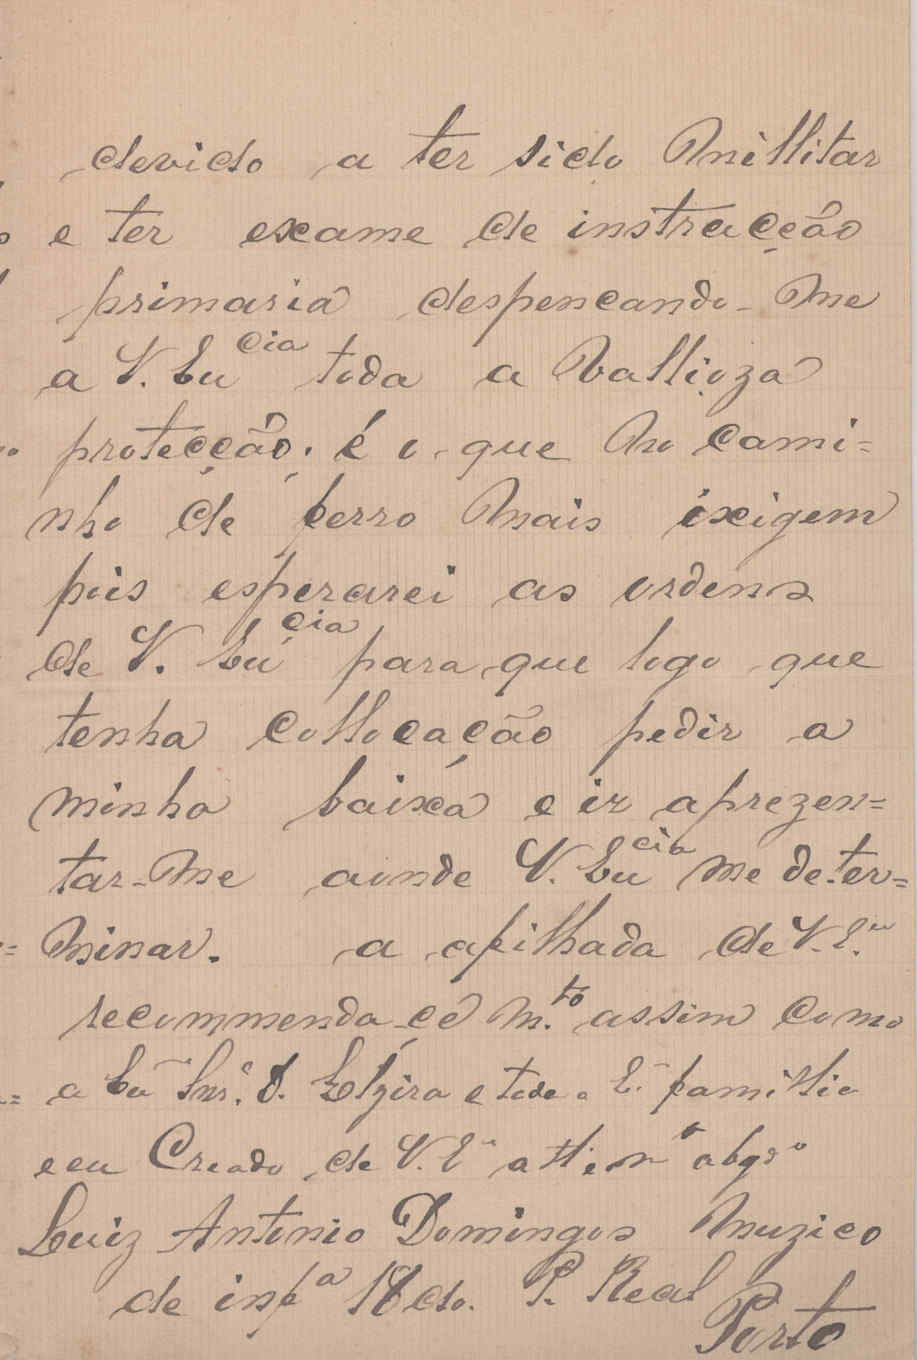 devido a ter sido Millitar
e ter exame de instracção
primaria despençando-Me
a V. Eu cia toda a Vallioza
protecção. é o que No cami=
nho de ferro Mais exigem
pois esperarei as ordens
de V. Eu cia para que logo que
tenha collocação pedir a
minha baixa e ir aprezen=
tar-Me aonde V. Eu cia me deter=
Minar. a afilhada de V. E.
recommenda-ce M.to assim como
a Snr.ª D. Elzira e toda a E. familia
e eu Creado de V. E. abgdo
Luiz Antonio Domingos Muzico
de infª 18 do. P. Real
Porto